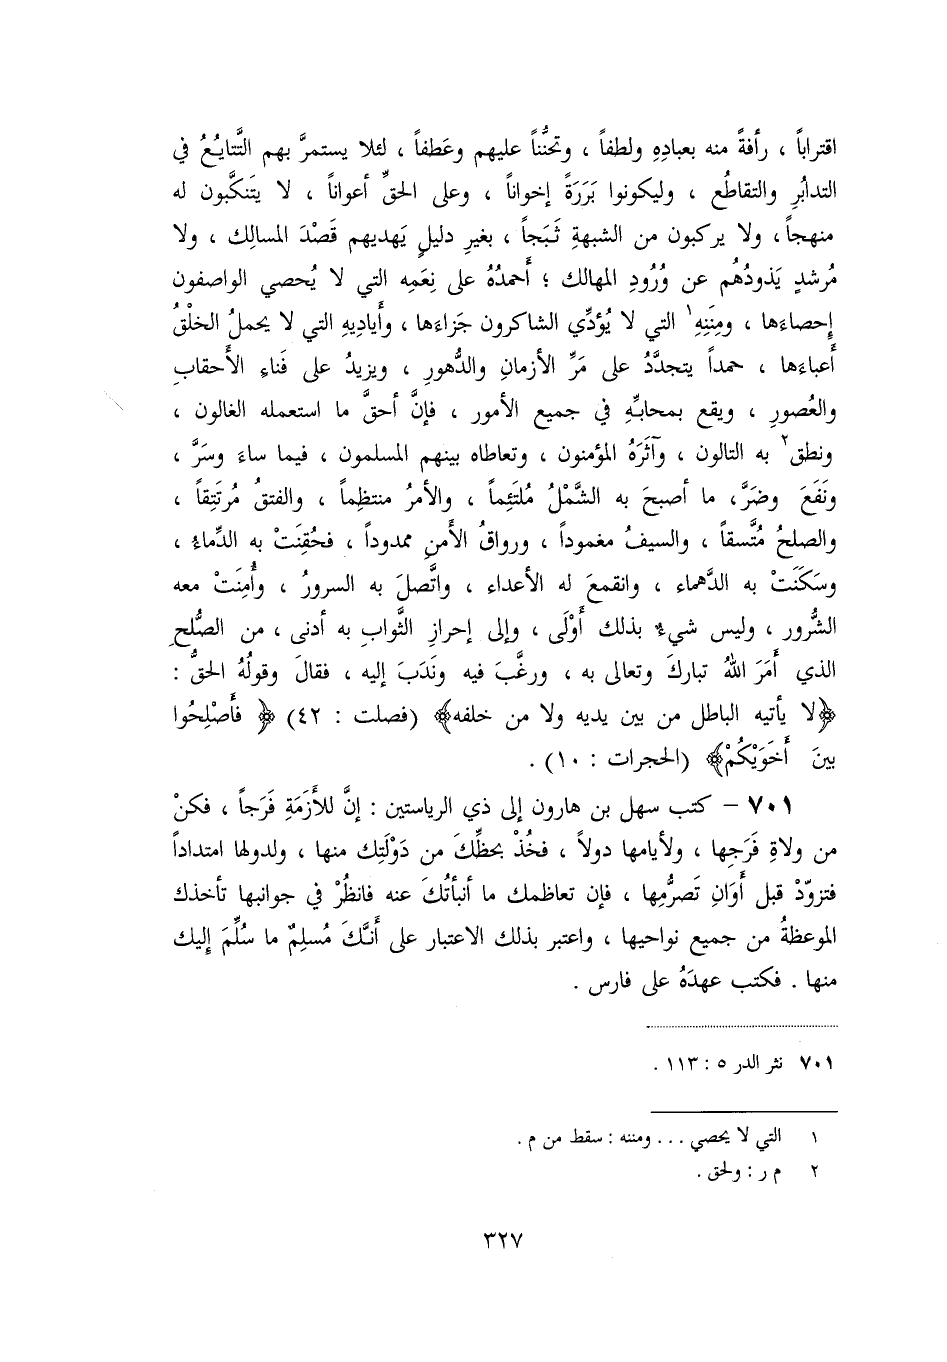 اقتراباً ، رأفةً منه بعبادِهِ ولطفاً ، وتحنُّناً عليهم وعَطفاً ، لئلا يستمرَّ بهم التَّتايُعُ في
التدابُرِ والتقاطُع ، وليكونوا بَرَرَةً إخواناً ، وعلى الحقِّ أعواناً ، لا يتَنكَّبون له
منهجاً ، ولا يركبون من الشبهةِ ثَبَجاً ، بغيرِ دليلٍ يَهديهم قَصْدَ المسالِك ، ولا
مُرشدٍ يَذودُهُم عن وُرُودِ المهالك ؛ أَحمدُهُ على نِعَمِه التي لا يُحصي الواصفون
إحصاءَها ، ومِنَنِهِ١ التي لا يُؤدِّي الشاكرون جَزاءَها ، وأَياديهِ التي لا يحملُ الخلْقُ
أَعباءَها ، حمداً يتجدَّدُ على مَرِّ الأزمانِ والدُّهورِ ، ويزيدُ على فَناءِ الأَحقابِ
والعُصورِ ، ويقع بمحابِّهِ في جميع الأمور ، فإنَّ أحقَّ ما استعمله الغالون ،
ونطق٢ به التالون ، وآثَرَهُ المؤمنون ، وتعاطاه بينهم المسلمون ، فيما ساءَ وسَرَّ ،
ونَفَعَ وضَرَّ ، ما أصبحَ به الشَّمْلُ مُلتَئِماً ، والأمرُ منتظِماً ، والفتقُ مُرتَتِقاً ،
والصلحُ مُتَّسقاً ، والسيفُ مغموداً ، ورواقُ الأَمنِ ممدوداً ، فحُقِنَتْ به الدِّماءُ ،
وسَكَنَتْ به الدَّهماء ، وانقمعَ له الأعداء ، واتَّصلَ به السرورُ ، وأُمِنَتْ معه
الشُّرور ، وليس شيءٌ بذلك أَوْلَى ، وإلى إحرازِ الثَّوابِ به أدنى ، من الصُّلحِ
الذي أَمَرَ اللهُ تباركَ وتعالى به ، ورغَّبَ فيه ونَدَبَ إليه ، فقالَ وقولُهُ الحقُّ :
﴿لا يأتيه الباطل من بين يديه ولا من خلفه﴾ (فصلت : ٤٢) ﴿ فأَصْلِحُوا
بينَ أَخَوَيْكُمْ﴾ (الحجرات : ١٠) .
٧٠١ – كتب سهل بن هارون إلى ذي الرياستين : إنَّ للأَزَمَةِ فَرَجاً ، فكنْ
من ولاةِ فَرَجِها ، ولأيامها دولاً ، فخُذْ بحظِّكَ من دَوْلَتِك منها ، ولدولها امتداداً
فتزوّدْ قبل أَوَانِ تَصرُّمِها ، فإن تعاظمك ما أنبأتُكَ عنه فانظُرْ في جوانبها تأخذك
الموعظةُ من جميع نواحيها ، واعتبر بذلك الاعتبار على أَنَّكَ مُسلِمٌ ما سُلِّمَ إليك
منها . فكتب عهدَهُ على فارس .
٧٠١ نثر الدر ٥ : ١١٣ .
١ التي لا يحصي ... ومننه : سقط من م .
٢ م ر : ولحق .
٣٢٧